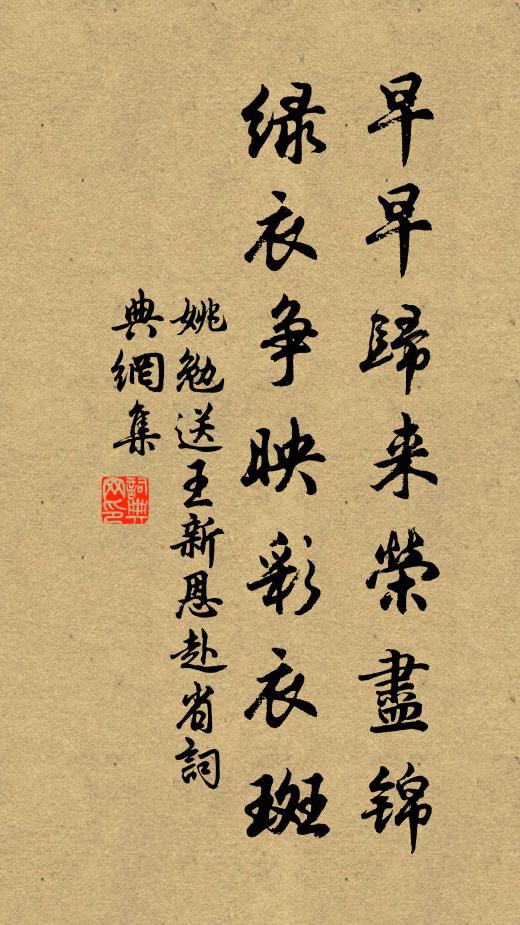 早早歸来榮盡錦
緑衣争映彩衣斑
姚勉送王新恩赴省詞
典網集
詞典網印